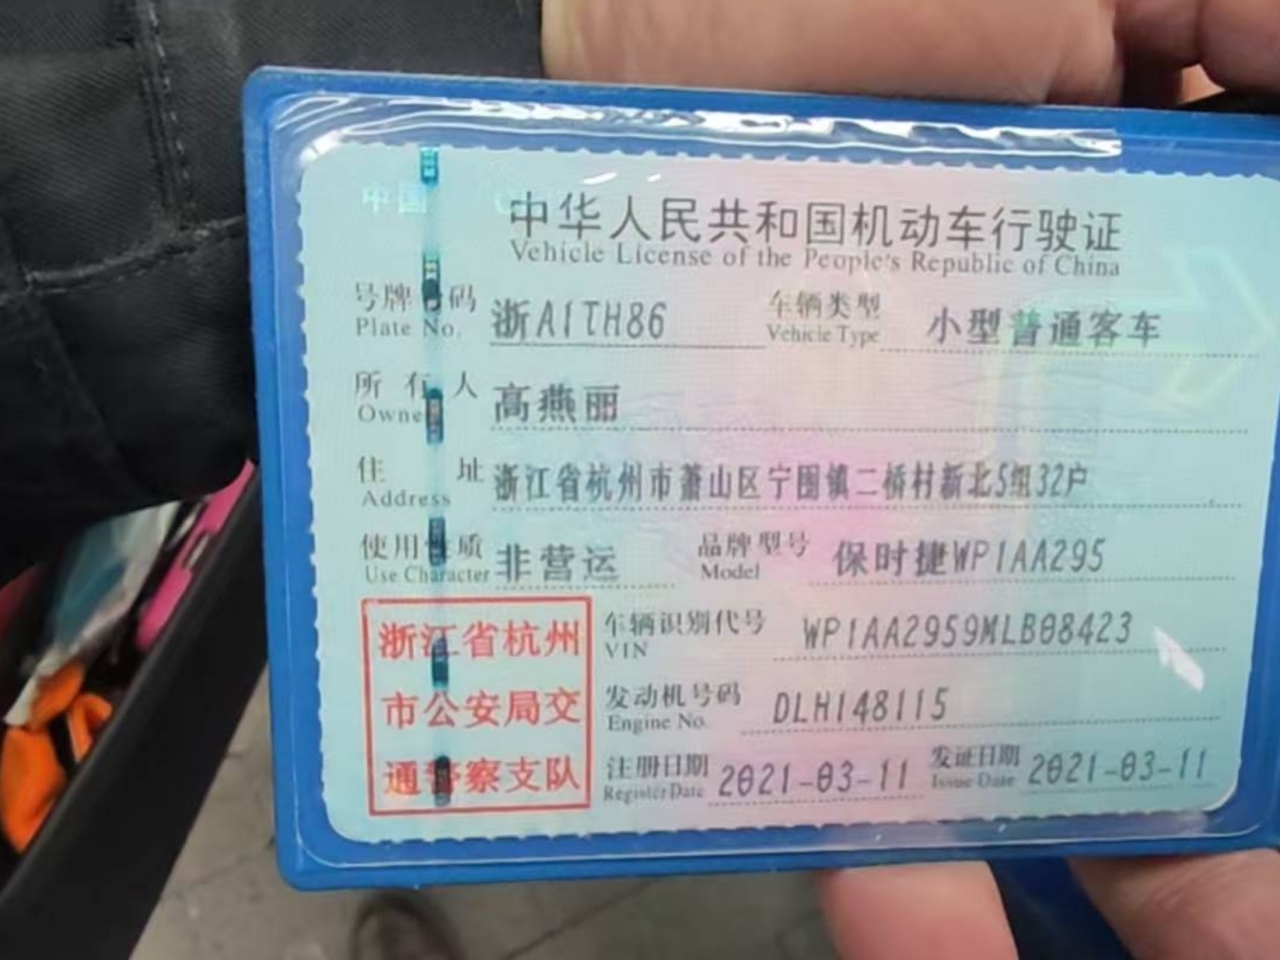 中华人民共和国机动车行驶证
Vehicle License of the People's Republic of China
号牌号码 浙A1TH86 车辆类型 小型普通客车
Plate No. Vehicle Type
所有人 高燕丽
Owner
住址 浙江省杭州市萧山区宁围镇二桥村新北5组32户
Address
使用性质 非营运 品牌型号 保时捷WP1AA295
Use Character Model
浙江省杭州
市公安局交
通警察支队
车辆识别代号 WP1AA2959MLB08423
VIN
发动机号码 DLH148115
Engine No.
注册日期 2021-03-11 发证日期 2021-03-11
Register Date Issue Date